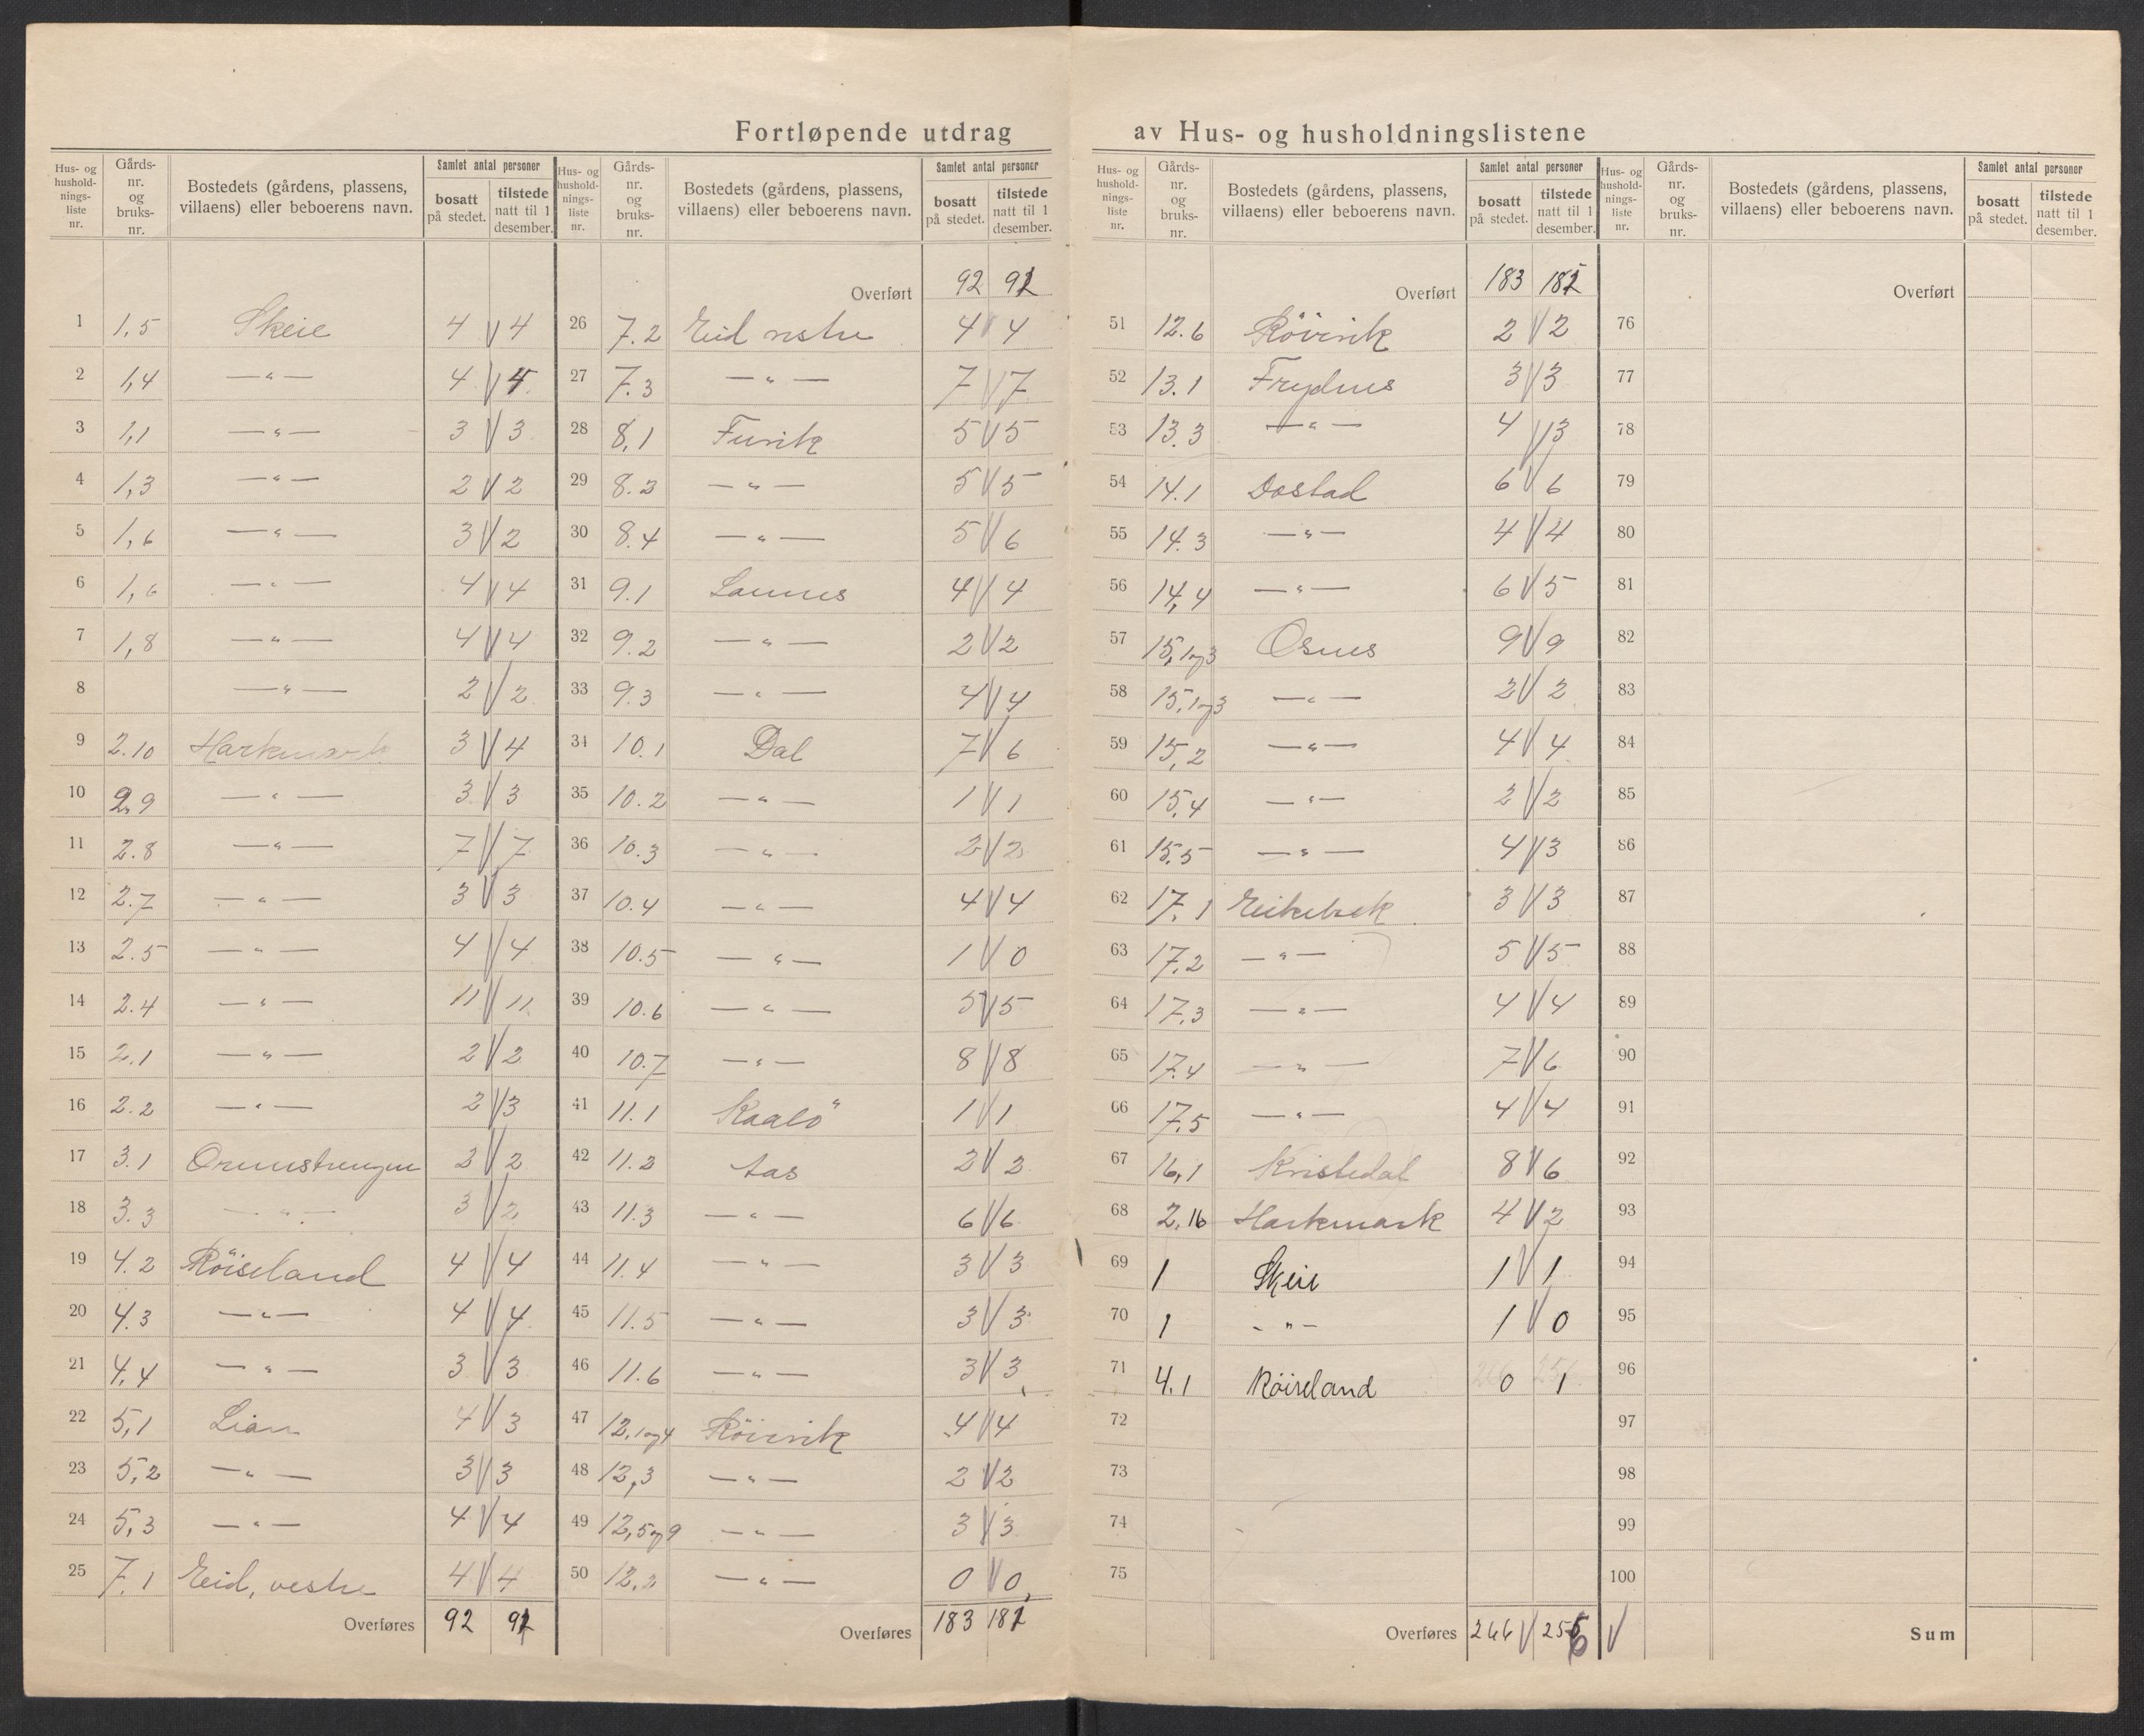 Fortløpende utdrag av Hus- og husholdningslistene
Hus- og husholdnings-liste nr. | Gårds-nr. og bruks-nr. | Bostedets (gårdens, plassens, villaens) eller beboerens navn. | Samlet antal personer bosatt på stedet. | tilstede natt til 1 desember.
1 | 1,5 | Skeie | 4 | 4
2 | 1,4 | —"— | 4 | 4
3 | 1,1 | —"— | 3 | 3
4 | 1,3 | —"— | 2 | 2
5 | 1,6 | —"— | 3 | 2
6 | 1,6 | —"— | 4 | 4
7 | 1,8 | —"— | 4 | 4
8 | —"— | 2 | 2
9 | 2.10 | Harkmark | 3 | 4
10 | 2,9 | —"— | 3 | 3
11 | 2.8 | —"— | 7 | 7
12 | 2.7 | —"— | 3 | 3
13 | 2.5 | —"— | 4 | 4
14 | 2.4 | —"— | 11 | 11
15 | 2.1 | —"— | 2 | 2
16 | 2.2 | —"— | 2 | 3
17 | 3.1 | 2 | 2
18 | 3.3 | —"— | 3 | 2
19 | 4.2 | Röiseland | 4 | 4
20 | 4.3 | —"— | 4 | 4
21 | 4.4 | —"— | 3 | 3
22 | 5,1 | Lian | 4 | 3
23 | 5,2 | —"— | 3 | 3
24 | 5,3 | —"— | 4 | 4
25 | 7.1 | Eid, vestre | 4 | 4
Overføres | 92 | 91
Hus- og husholdnings-liste nr. | Gårds-nr. og bruks-nr. | Bostedets (gårdens, plassens, villaens) eller beboerens navn. | Samlet antal personer bosatt på stedet. | tilstede natt til 1 desember.
Overført | 92 | 91
26 | 7.2 | Eid vestre | 4 | 4
27 | 7.3 | —"— | 7 | 7
28 | 8,1 | Fuvik | 5 | 5
29 | 8.3 | —"— | 5 | 5
30 | 8.4 | —"— | 5 | 6
31 | 9.1 | Launes | 4 | 4
32 | 9.2 | —"— | 2 | 2
33 | 9.3 | —"— | 4 | 4
34 | 10.1 | Dal | 7 | 6
35 | 10.2 | —"— | 1 | 1
36 | 10.3 | —"— | 2 | 2
37 | 10.4 | —"— | 4 | 4
38 | 10.5 | —"— | 1 | 0
39 | 10.6 | —"— | 5 | 5
40 | 10.7 | —"— | 8 | 8
41 | 11.1 | 1 | 1
42 | 11.2 | Aas | 2 | 2
43 | 11.3 | —"— | 6 | 6
44 | 11.4 | —"— | 3 | 3
45 | 11.5 | —"— | 3 | 3
46 | 11.6 | —"— | 3 | 3
47 | 12,1og4 | Röivik | 4 | 4
48 | 12,3 | —"— | 2 | 2
49 | 12,5og9 | —"— | 3 | 3
50 | 12,2 | —"— | 0 | 0
Overføres | 183 | 181
Hus- og husholdnings-liste nr. | Gårds-nr. og bruks-nr. | Bostedets (gårdens, plassens, villaens) eller beboerens navn. | Samlet antal personer bosatt på stedet. | tilstede natt til 1 desember.
Overført | 183 | 181
51 | 12.6 | Röivik | 2 | 2
52 | 13.1 | Frydnes | 3 | 3
53 | 13.3 | —"— | 4 | 3
54 | 14.1 | Dostad | 6 | 6
55 | 14.3 | —"— | 4 | 4
56 | 14,4 | —"— | 6 | 5
57 | 15,1og3 | Osnes | 9 | 9
58 | 15,1og3 | —"— | 2 | 2
59 | 15,2 | —"— | 4 | 4
60 | 15,4 | —"— | 2 | 2
61 | 15.5 | —"— | 4 | 3
62 | 17.1 | Eikebæk | 3 | 3
63 | 17.2 | —"— | 5 | 5
64 | 17.3 | —"— | 4 | 4
65 | 17.4 | —"— | 7 | 6
66 | 17.5 | —"— | 4 | 4
67 | 16,1 | Kristedal | 8 | 6
68 | 2.16 | Harkmark | 4 | 2
69 | 1 | Skeie | 1 | 1
70 | 1 | -"- | 1 | 0
71 | 4.1 | Röiseland | 0 | 1
72
73
74
75
Overføres | 266 | 256
Hus- og husholdnings-liste nr. | Gårds-nr. og bruks-nr. | Bostedets (gårdens, plassens, villaens) eller beboerens navn. | Samlet antal personer bosatt på stedet. | tilstede natt til 1 desember.
Overført
76
77
78
79
80
81
82
83
84
85
86
87
88
89
90
91
92
93
94
95
96
97
98
99
100
Sum